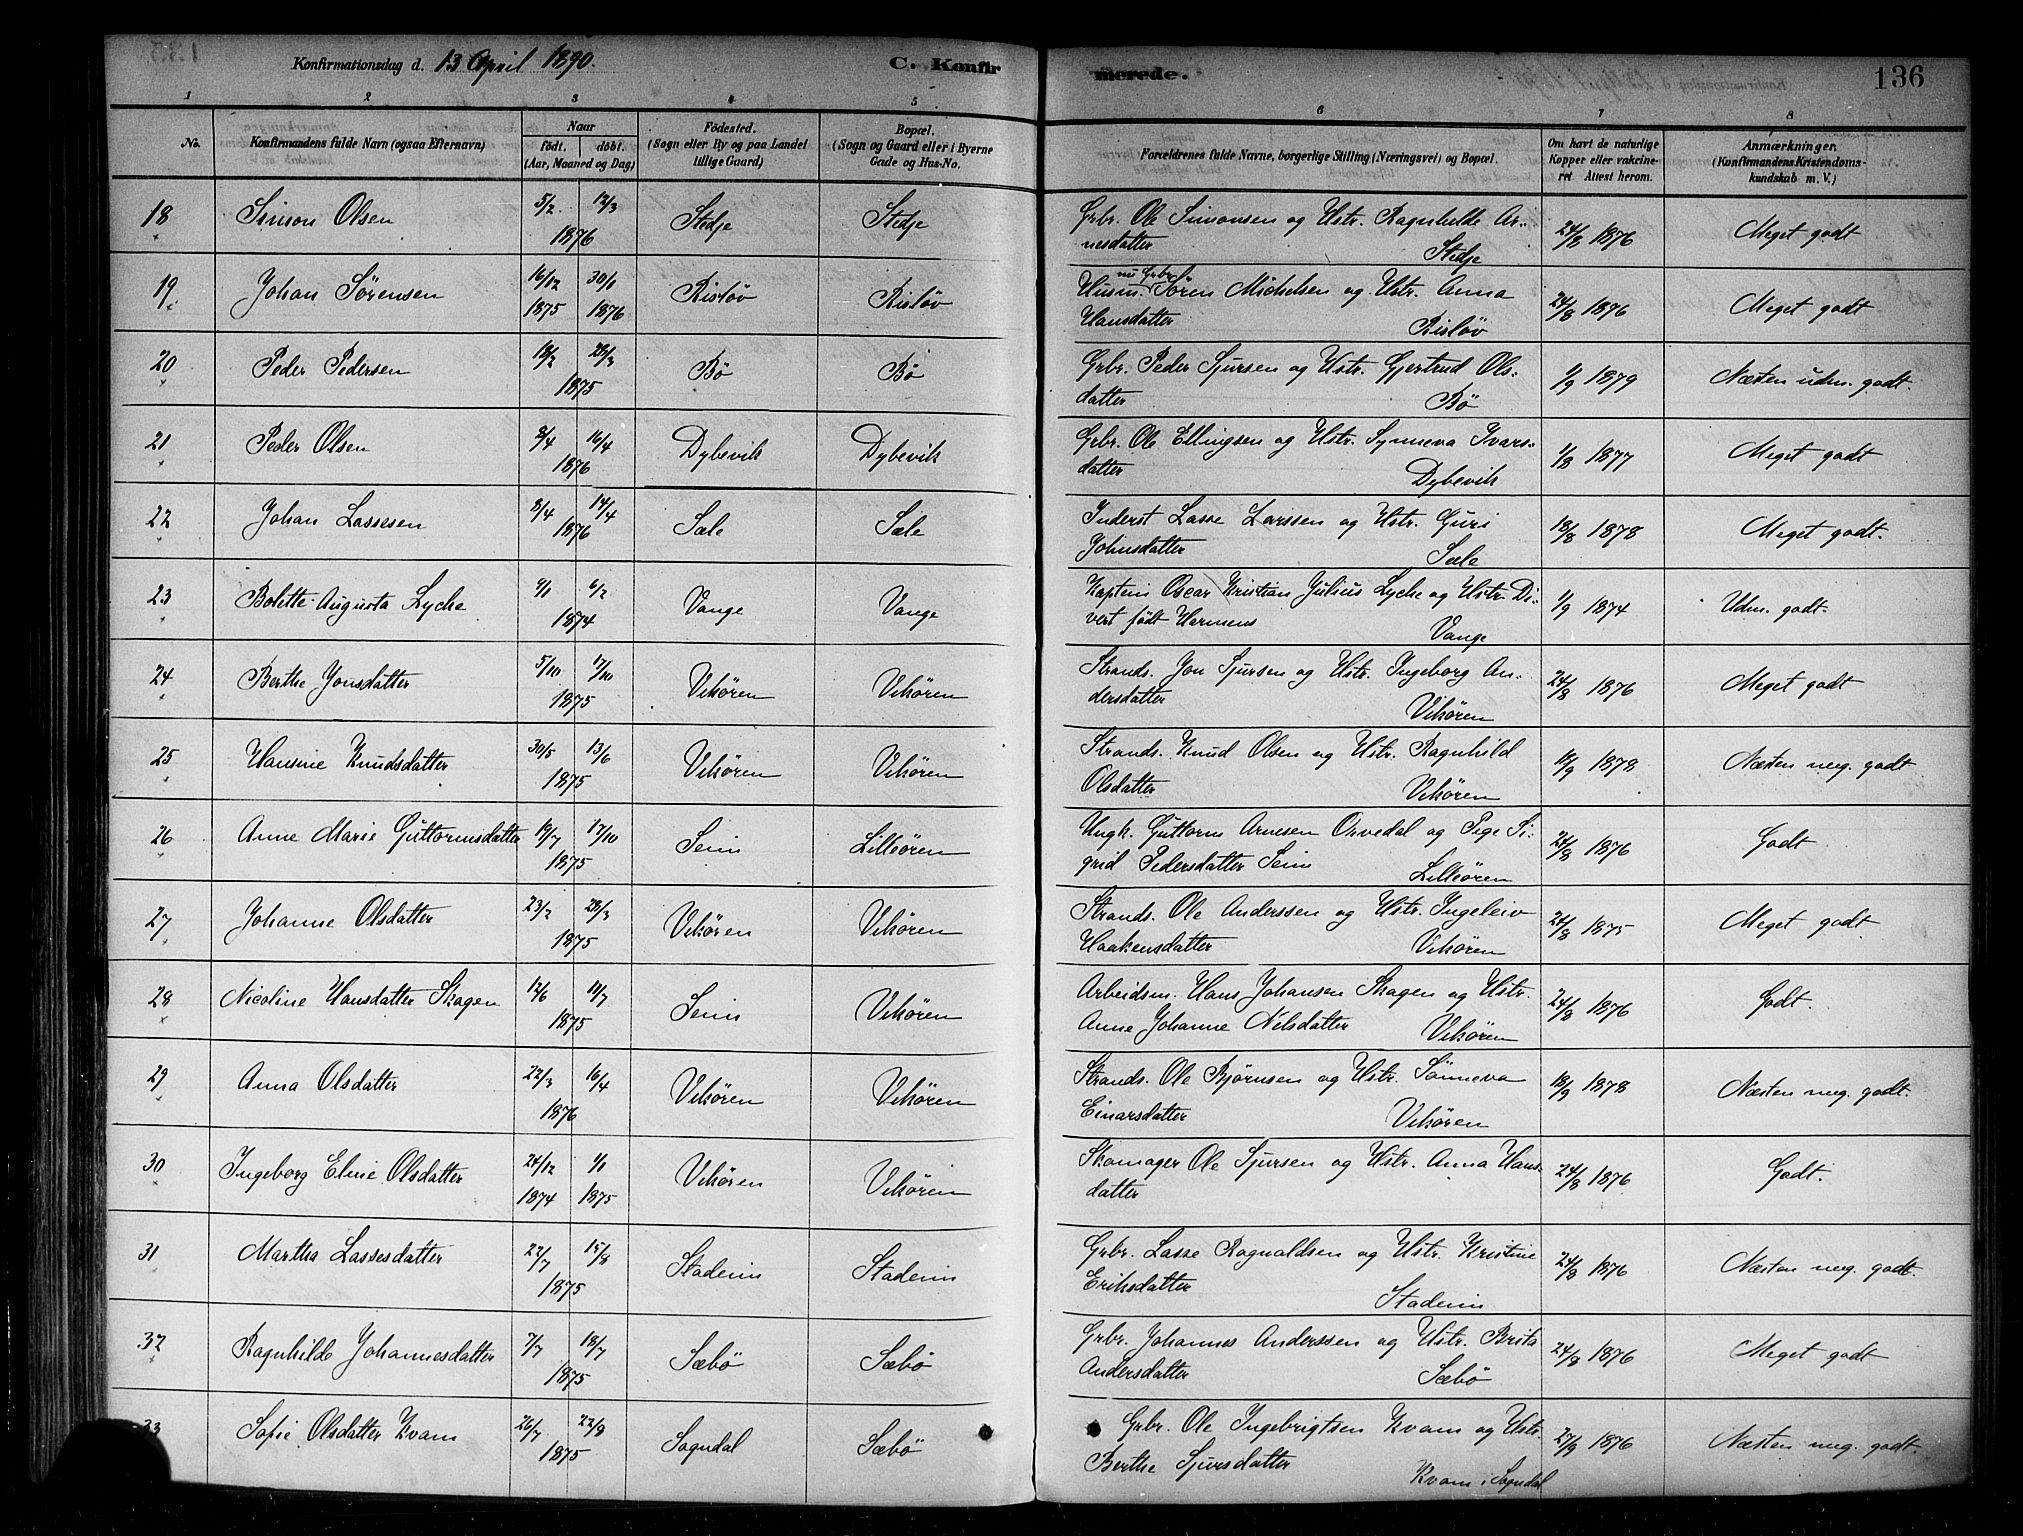 Konfirmationsdag d. 13 April 1890. C. Konfir
merede. 136
1 2 3 4 5 6 7 8
No. Konfirmandens fulde Navn (ogsaa Efternavn) Naar født. døbt. (Aar, Maaned og Dag) Fødested. (Sogn eller By og paa Landet tillige Gaard) Bopæl. (Sogn og Gaard eller i Byerne Gade og Hus-No. Forældrenes fulde Navne, borgerlige Stilling (Næringsvei) og Bopæl. Om havt de naturlige Kopper eller vakcineret Attest herom. Anmærkninger. (Konfirmandens Kristendomskundskab m. V.)
18 Simon Olsen 5/2 12/3 1876 Stedje Stedje Grbr. Ole Simonsen og Hstr. Ragnhilde Ar-
nesdatter Stedje 24/8 1876 Meget godt
19 Johan Sørensen 16/12 1875 30/1 1876 Risløv Risløv Husm. nu Grbr. Søren Michelsen og Hstr. Anna
Hansdatter Risløv 24/8 1876 Meget godt
20 Peder Pedersen 18/2 28/3 1875 Bø Bø Grbr. Peder Sjursen og Hstr. Gjertrud Ols-
datter Bø 1/9 1879 Næsten udm. godt.
21 Peder Olsen 3/4 16/4 1876 Dybevik Dybevik Grbr. Ole Ellingsen og Hstr. Synneva Ivars-
datter Dybevik 1/8 1877 Meget godt
22 Johan Lassesen 8/4 14/4 1876 Sæle Sæle Inderst Lasse Larssen og Hstr. Guri
Johnsdatter Sæle 18/8 1878 Meget godt.
23 Bolette Augusta Lyche 9/1 6/2 1874 Vange Vange Kaptein Oscar Kristian Julius Lyche og Hstr. Di-
vert født Harmens Vange 1/9 1874 Udm. godt.
24 Berthe Jonsdatter 5/10 17/10 1875 Vikøren Vikøren Strands. Jon Sjursen og Hstr. Ingeborg An-
dersdatter Vikøren 24/8 1876 Meget godt
25 Hansine Knudsdatter 30/5 13/6 1875 Vikøren Vikøren Strands. Knud Olsen og Hstr. Ragnhild
Olsdatter Vikøren 18/9 1878 Næsten meg. godt
26 Anne Marie Guttormsdatter 19/7 17/10 1875 Seim Lilleøren Ungk. Guttorm Arnesen Orvedal og Pige Si-
grid Pedersdatter Seim Lilleøren 24/8 1876 Godt
27 Johanne Olsdatter 23/2 28/3 1875 Vikøren Vikøren Strands. Ole Anderssen og Hstr. Ingeleiv
Haakensdatter Vikøren 24/8 1875 Meget godt
28 Nicoline Hansdatter Skagen 12/6 11/7 1875 Seim Vikøren Arbeidsm. Hans Johansen Skagen og Hstr.
Anne Johanne Nilsdatter Vikøren 24/8 1876 Godt.
29 Anna Olsdatter 22/3 16/4 1876 Vikøren Vikøren Strands. Ole Bjørnsen og Hstr. Sønneva
Einarsdatter Vikøren 18/9 1878 Næsten meg. godt.
30 Ingeborg Eline Olsdatter 24/12 1874 1/1 1875 Vikøren Vikøren Skomager Ole Sjursen og Hstr. Anna Hans-
datter 24/8 1876 Godt.
31 Martha Lassesdatter 22/7 15/8 1875 Stadeim Stadeim Grbr. Lasse Ragnaldsen og Hstr. Kristine
Eriksdatter Stadeim 24/8 1876 Næsten meg. godt.
32 Ragnhilde Johannesdatter 7/7 18/7 1875 Sæbø Sæbø Grbr. Johannes Anderssen og Hstr. Brita
Andersdatter Sæbø 24/8 1876 Meget godt
33 Sofie Olsdatter Kvam 26/7 22/8 1875 Sogndal Sæbø Grbr. Ole Ingebrigtsen Kvam og Hstr.
Berthe Sjursdatter Kvam i Sogndal 27/9 1876 Næsten meg. godt.